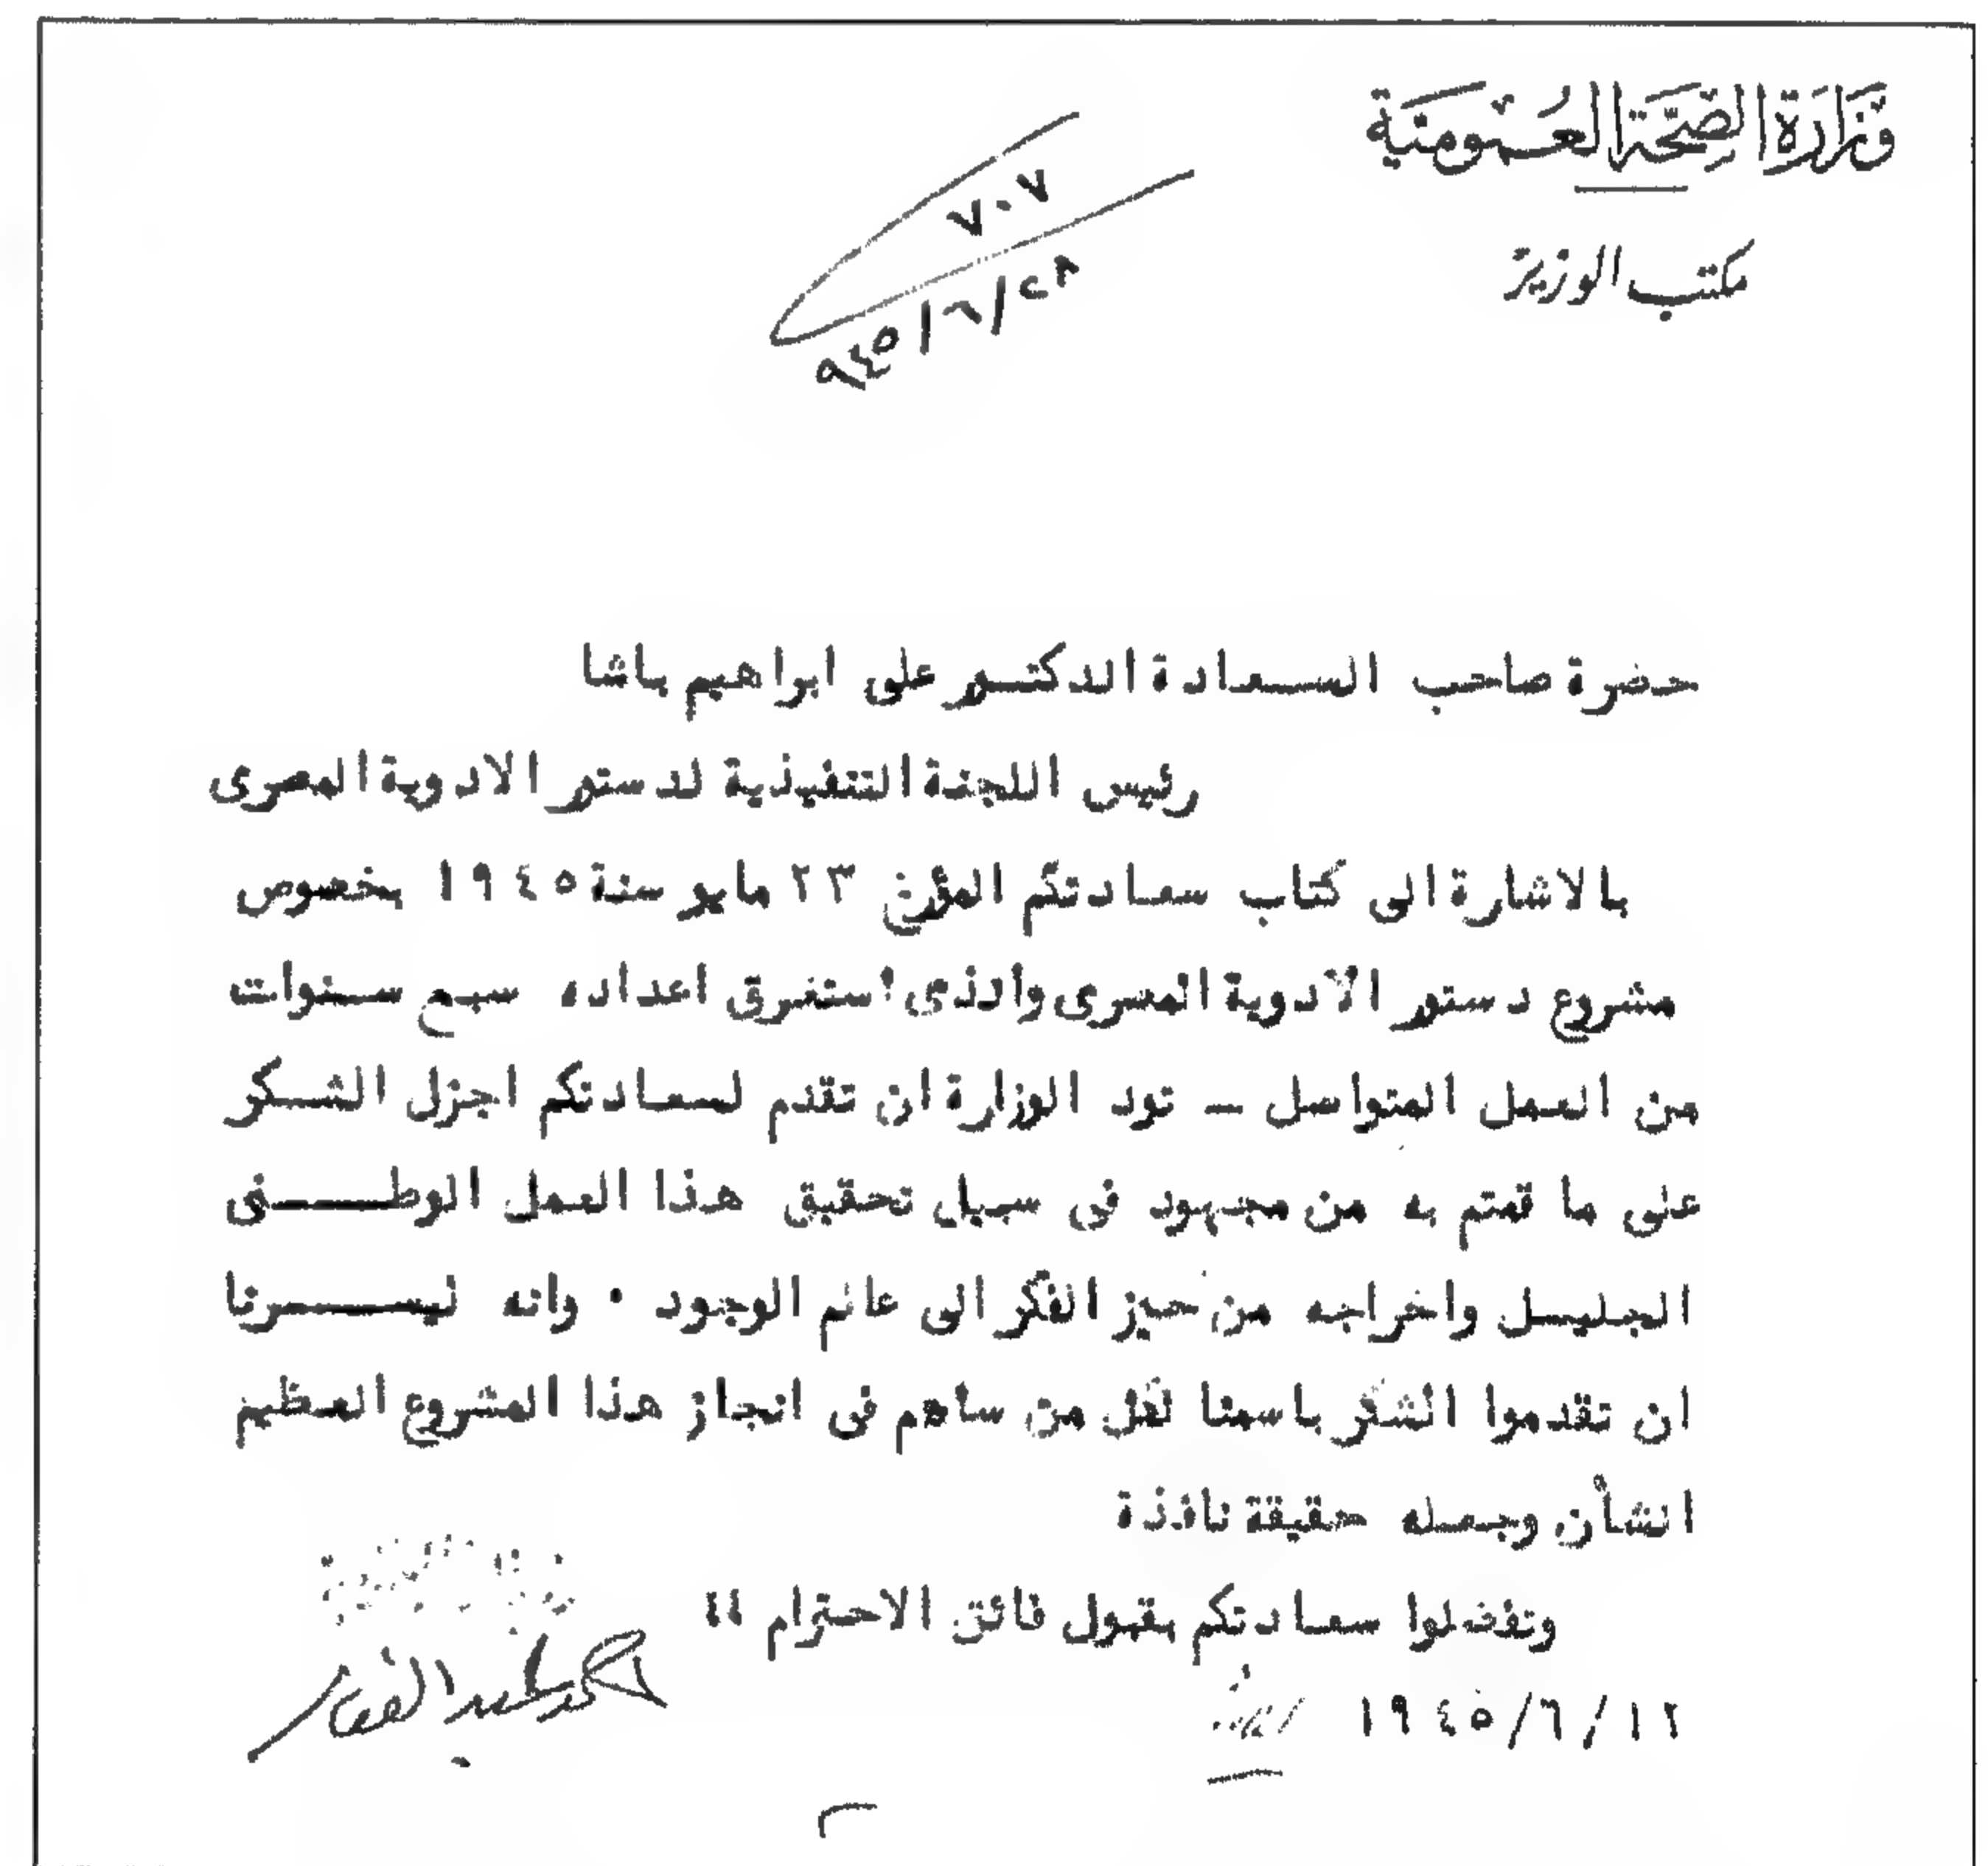 وَزَارَةُ الصِّحَّة العُمُومِيَّة
مكتب الوزير
٧٠٧
٩٤٥/٦/٢٨
حضرة صاحب السعادة الدكتور على ابراهيم باشا
رئيس اللجنة التنفيذية لدستور الادوية المصرى
بالاشارة الى كتاب سعادتكم المؤرخ ٢٣ مايو سنة ١٩٤٥ بخصوص
مشروع دستور الادوية المصرى والذى استغرق اعداده سبع سنوات
من العمل المتواصل — تود الوزارة ان تقدم لسعادتكم اجزل الشكر
على ما قمتم به من مجهود فى سبيل تحقيق هذا العمل الوطنى
الجليل واخراجه من حيز الفكر الى عالم الوجود ٠ وانه ليسرنا
ان تقدموا الشكر باسمنا لكل من ساهم فى انجاز هذا المشروع العظيم
الشأن وجعله حقيقة نافذة
وتفضلوا سعادتكم بقبول فائق الاحترام ،،
١٩٤٥/٦/١٢